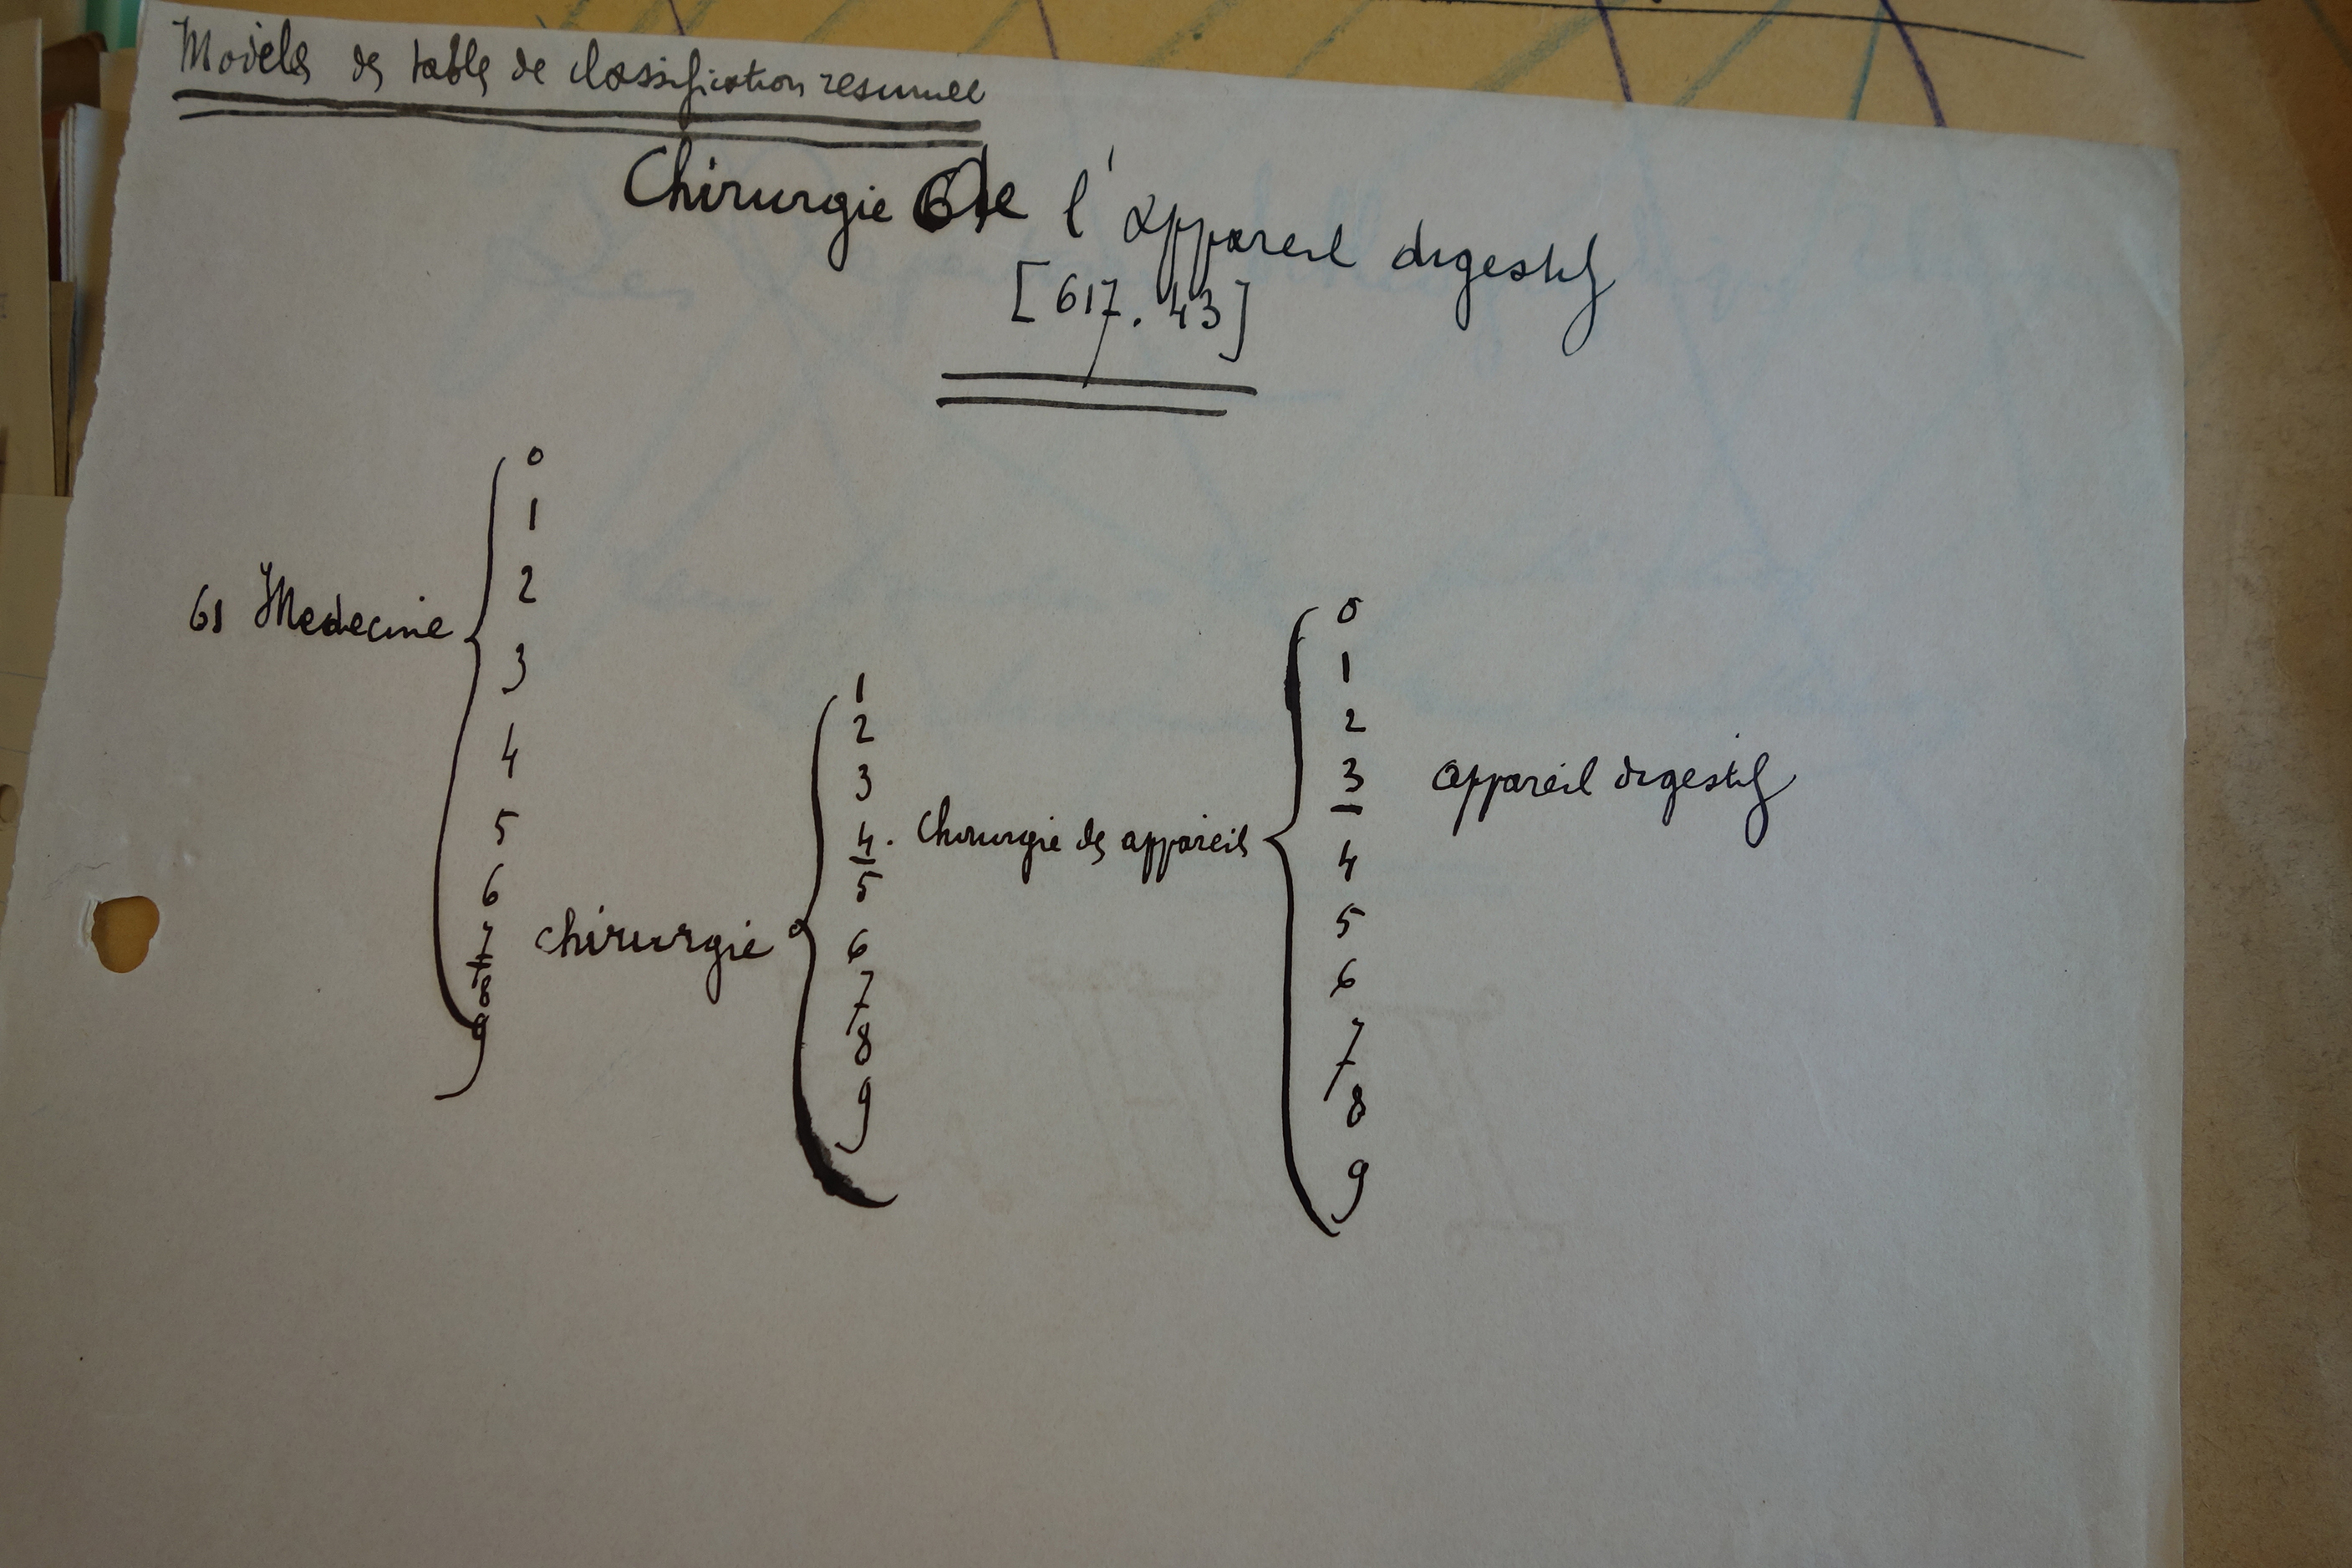 Modele des table de classification resumee
Chirurgie de l'appareil digestif
[617.43]
61 Medecine
0
1
2
3
4
5
6
7 chirurgie
8
9
1
2
3
4. Chirurgie des appareils
5
6
7
8
9
0
1
2
3 appareil digestif
4
5
6
7
8
9